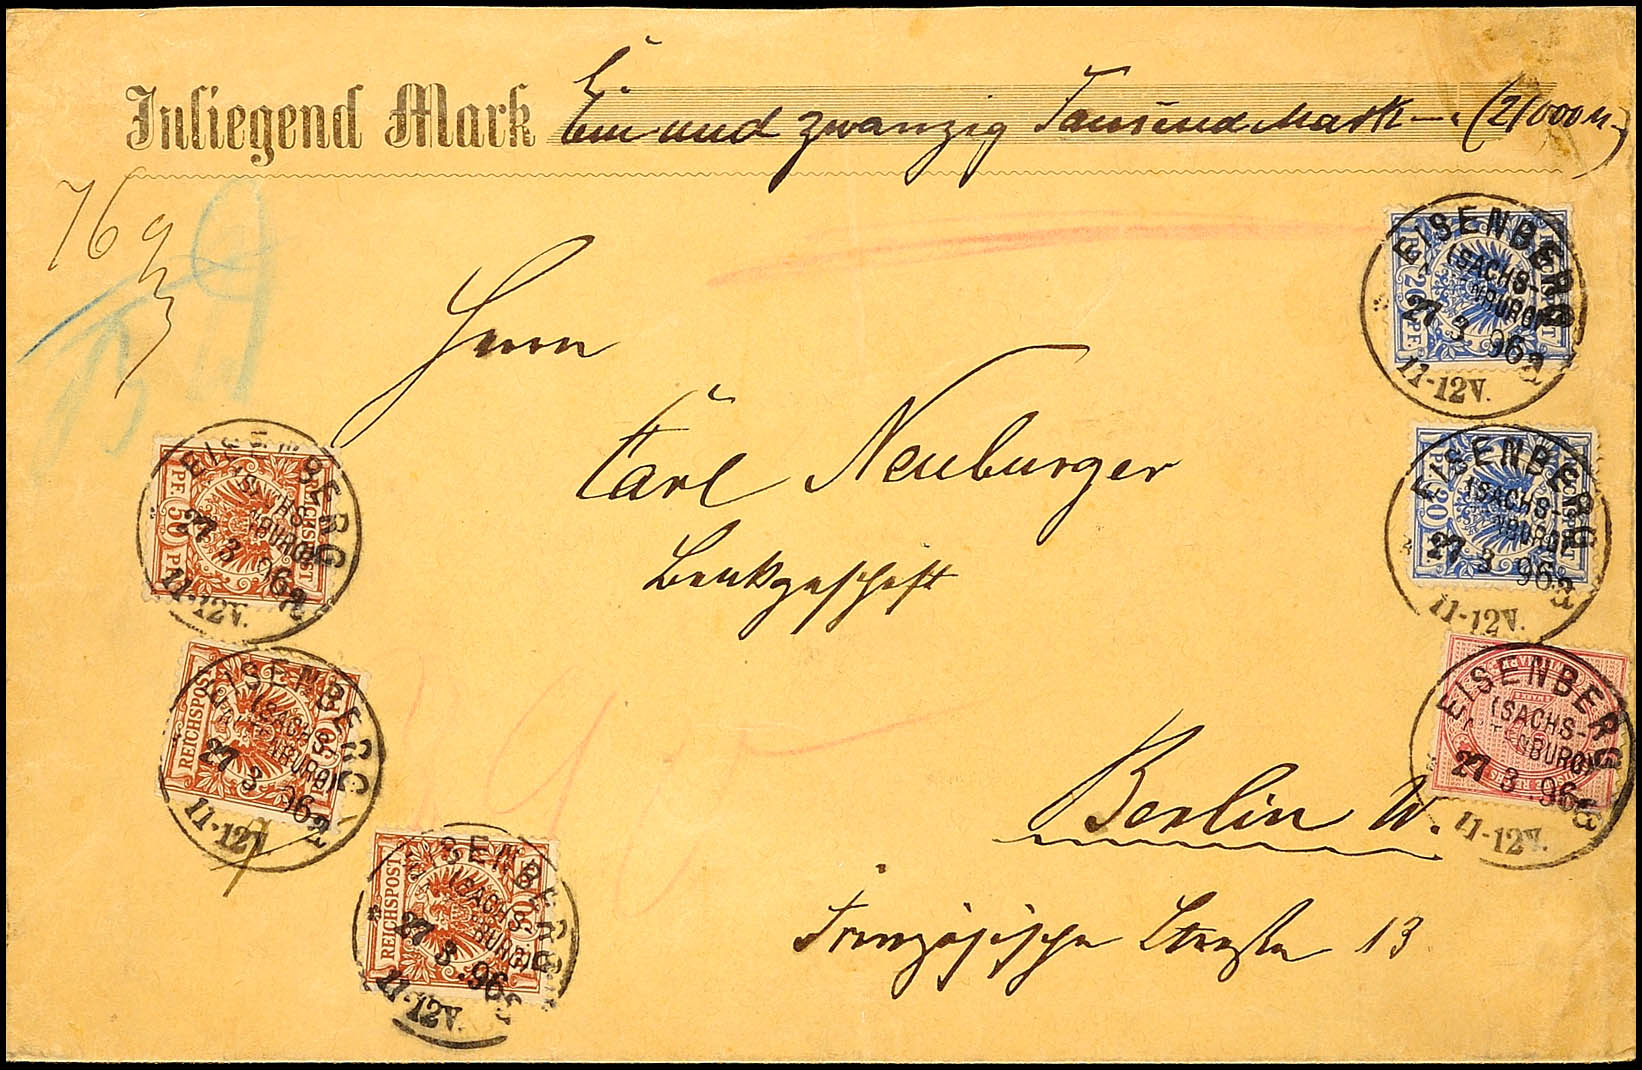 Inliegend Mark Ein und zwanzig Tausend Mark —. (21000 M.)
76 g
Herrn
Carl Neuburger
Bankgeschäft
Berlin W.
Französische Straße 13
EISENBERG
(SACHS-
NBURG)
27 3 96 a
11-12V.
20 PF.
EISENBERG
(SACHS-
NBURG)
27 3 96 a
11-12V.
EISENBERG
(SACHS-
TENBURG)
27 3 .96 a
11-12V.
EISENBERG
HS-
NBURG)
27 3 96 a
11-12V.
PF. 50 PF.
REICHSPOST
EISENBERG
(SACHS-
NBURG)
27 3 96 a
11-12V
REICHSPOST
SENBERG
(SACHS-
BURG)
27 3 .96 a
11-12V.
REICHSPOST